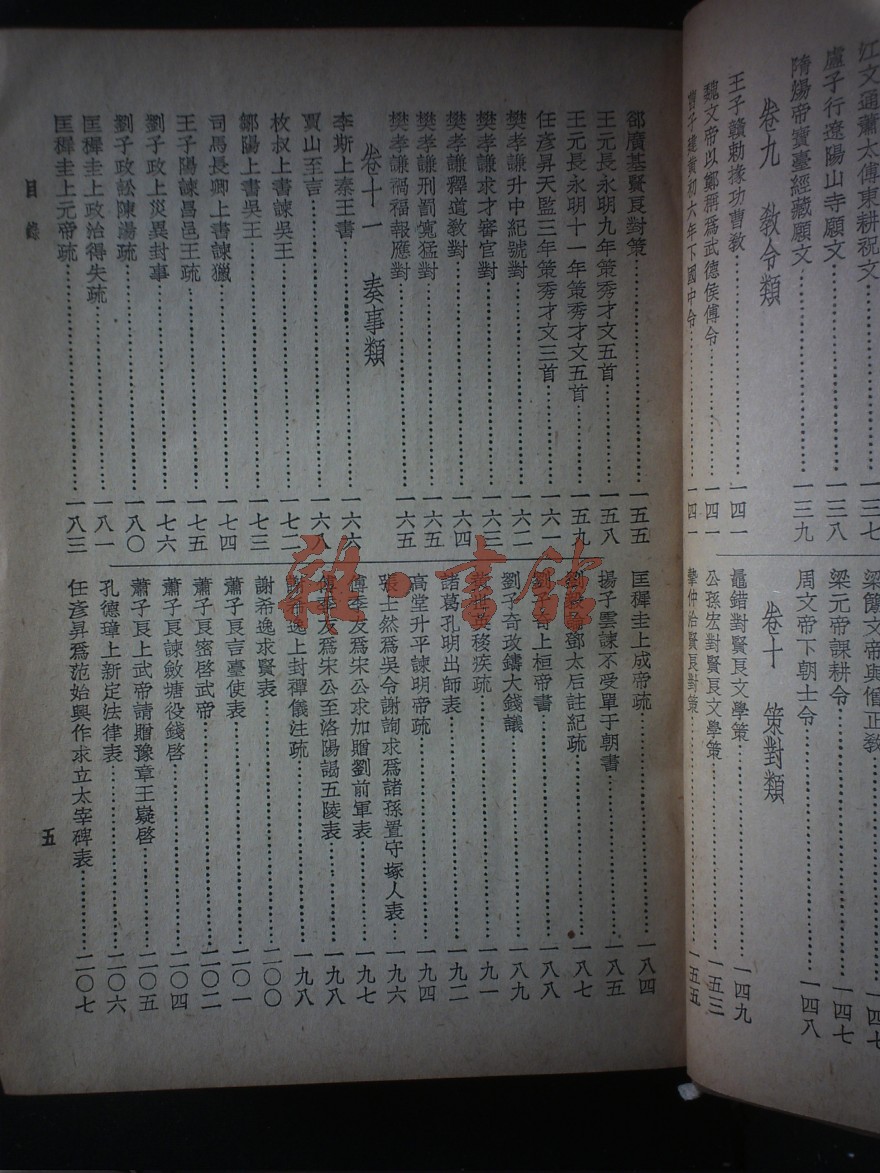 江文通蕭太傅東耕祝文……一三七
盧子行遼陽山寺願文……一三八
隋煬帝寶臺經藏願文……一三九
卷九 教令類
王子贛勅掾功曹教……一四一
魏文帝以鄭稱爲武德侯傅令……一四一
曹子建黃初六年下國中令……一四一
梁簡文帝與僧正教……一四七
梁元帝課耕令……一四七
周文帝下朝士令……一四八
卷十 策對類
鼂錯對賢良文學策……一四九
公孫宏對賢良文學策……一五三
摯仲治賢良對策……一五五
郤廣基賢良對策……一五五
王元長永明九年策秀才文五首……一五八
王元長永明十一年策秀才文五首……一五九
任彥昇天監三年策秀才文三首……一六一
樊孝謙升中紀號對……一六二
樊孝謙求才審官對……一六三
樊孝謙釋道教對……一六四
樊孝謙刑罰寬猛對……一六五
樊孝謙禍福報應對……一六五
卷十一 奏事類
李斯上秦王書……一六六
賈山至言……一六八
枚叔上書諫吳王……一七二
鄒陽上書吳王……一七三
司馬長卿上書諫獵……一七四
王子陽諫昌邑王疏……一七五
劉子政上災異封事……一七六
劉子政訟陳湯疏……一八〇
匡穉圭上政治得失疏……一八一
匡穉圭上元帝疏……一八三
匡穉圭上成帝疏……一八四
揚子雲諫不受單于朝書……一八五
劉毅論鄧太后註紀疏……一八七
劉子奇上桓帝書……一八八
劉子奇改鑄大錢議……一八九
移疾疏……一九一
諸葛孔明出師表……一九二
高堂升平諫明帝疏……一九四
張士然爲吳令謝詢求爲諸孫置守塚人表……一九六
傅季友爲宋公求加贈劉前軍表……一九七
傅季友爲宋公至洛陽謁五陵表……一九八
謝希逸上封禪儀注疏……一九八
謝希逸求賢表……二〇〇
蕭子良言臺使表……二〇一
蕭子良密啓武帝……二〇二
蕭子良諫斂塘役錢啓……二〇四
蕭子良上武帝請贈豫章王嶷啓……二〇五
孔德璋上新定法律表……二〇六
任彥昇爲范始興作求立太宰碑表……二〇七
目錄
五